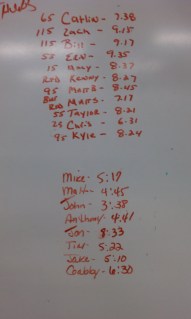 65 Caitlin - 7.38
115 Zach - 9.15
115 Bill - 9.17
55 Erin - 9.35
15 Amy - 8.37
Kenny - 8.27
95 Matt B - 8.45
Matt S - 7.17
55 Taylor - 8.21
25 Chris - 6.31
95 Kyle - 8.24
Mike - 5:19
Matt - 4:45
John - 3:38
Anthony 4:41
Jon - 8:33
Tim - 5:22
Jake - 5:10
Chubby - 6:30